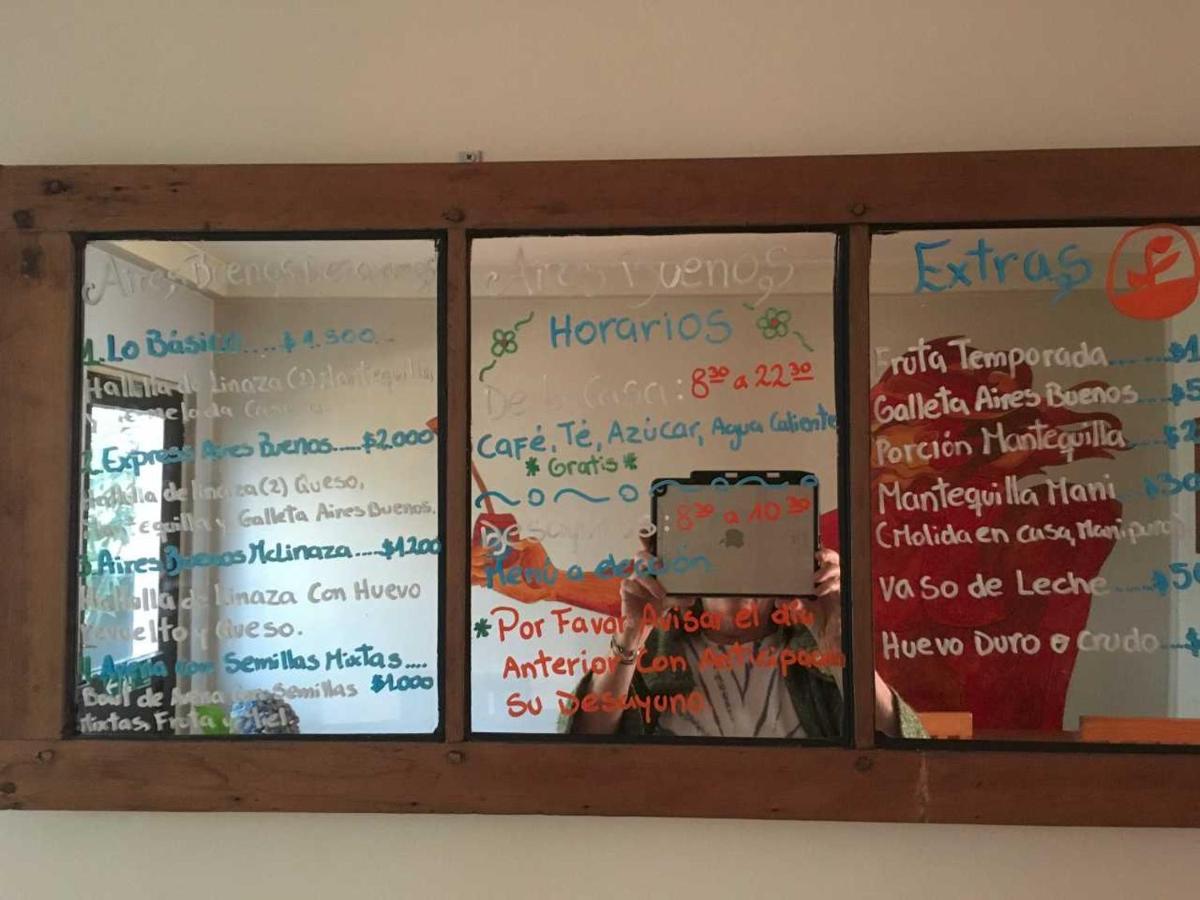 Aires Buenos
1. Lo Básico.....$1.500..
Hallulla de Linaza (2), Mantequilla
y Mermelada Casera
2. Express Aires Buenos.....$2.000
Hallulla de linaza (2) Queso,
Mantequilla y Galleta Aires Buenos.
3. Aires Buenos McLinaza....$1.200
Hallulla de Linaza Con Huevo
Revuelto y Queso.
4. Avena con Semillas Mixtas....
$1.000
Bowl de Avena con Semillas
Mixtas, Fruta y Miel.
Aires Buenos
Horarios
De Casa: 8³⁰ a 22³⁰
Café, Té, Azúcar, Agua Caliente
* Gratis *
Desayunos: 8³⁰ a 10³⁰
Menú a elección
* Por Favor Avisar el día
Anterior Con Anticipación
Su Desayuno
Extras
Fruta Temporada......$1
Galleta Aires Buenos....$5
Porción Mantequilla...$2
Mantequilla Mani....$30
(Molida en casa, Mani puro)
Vaso de Leche.....$50
Huevo Duro o Crudo....$